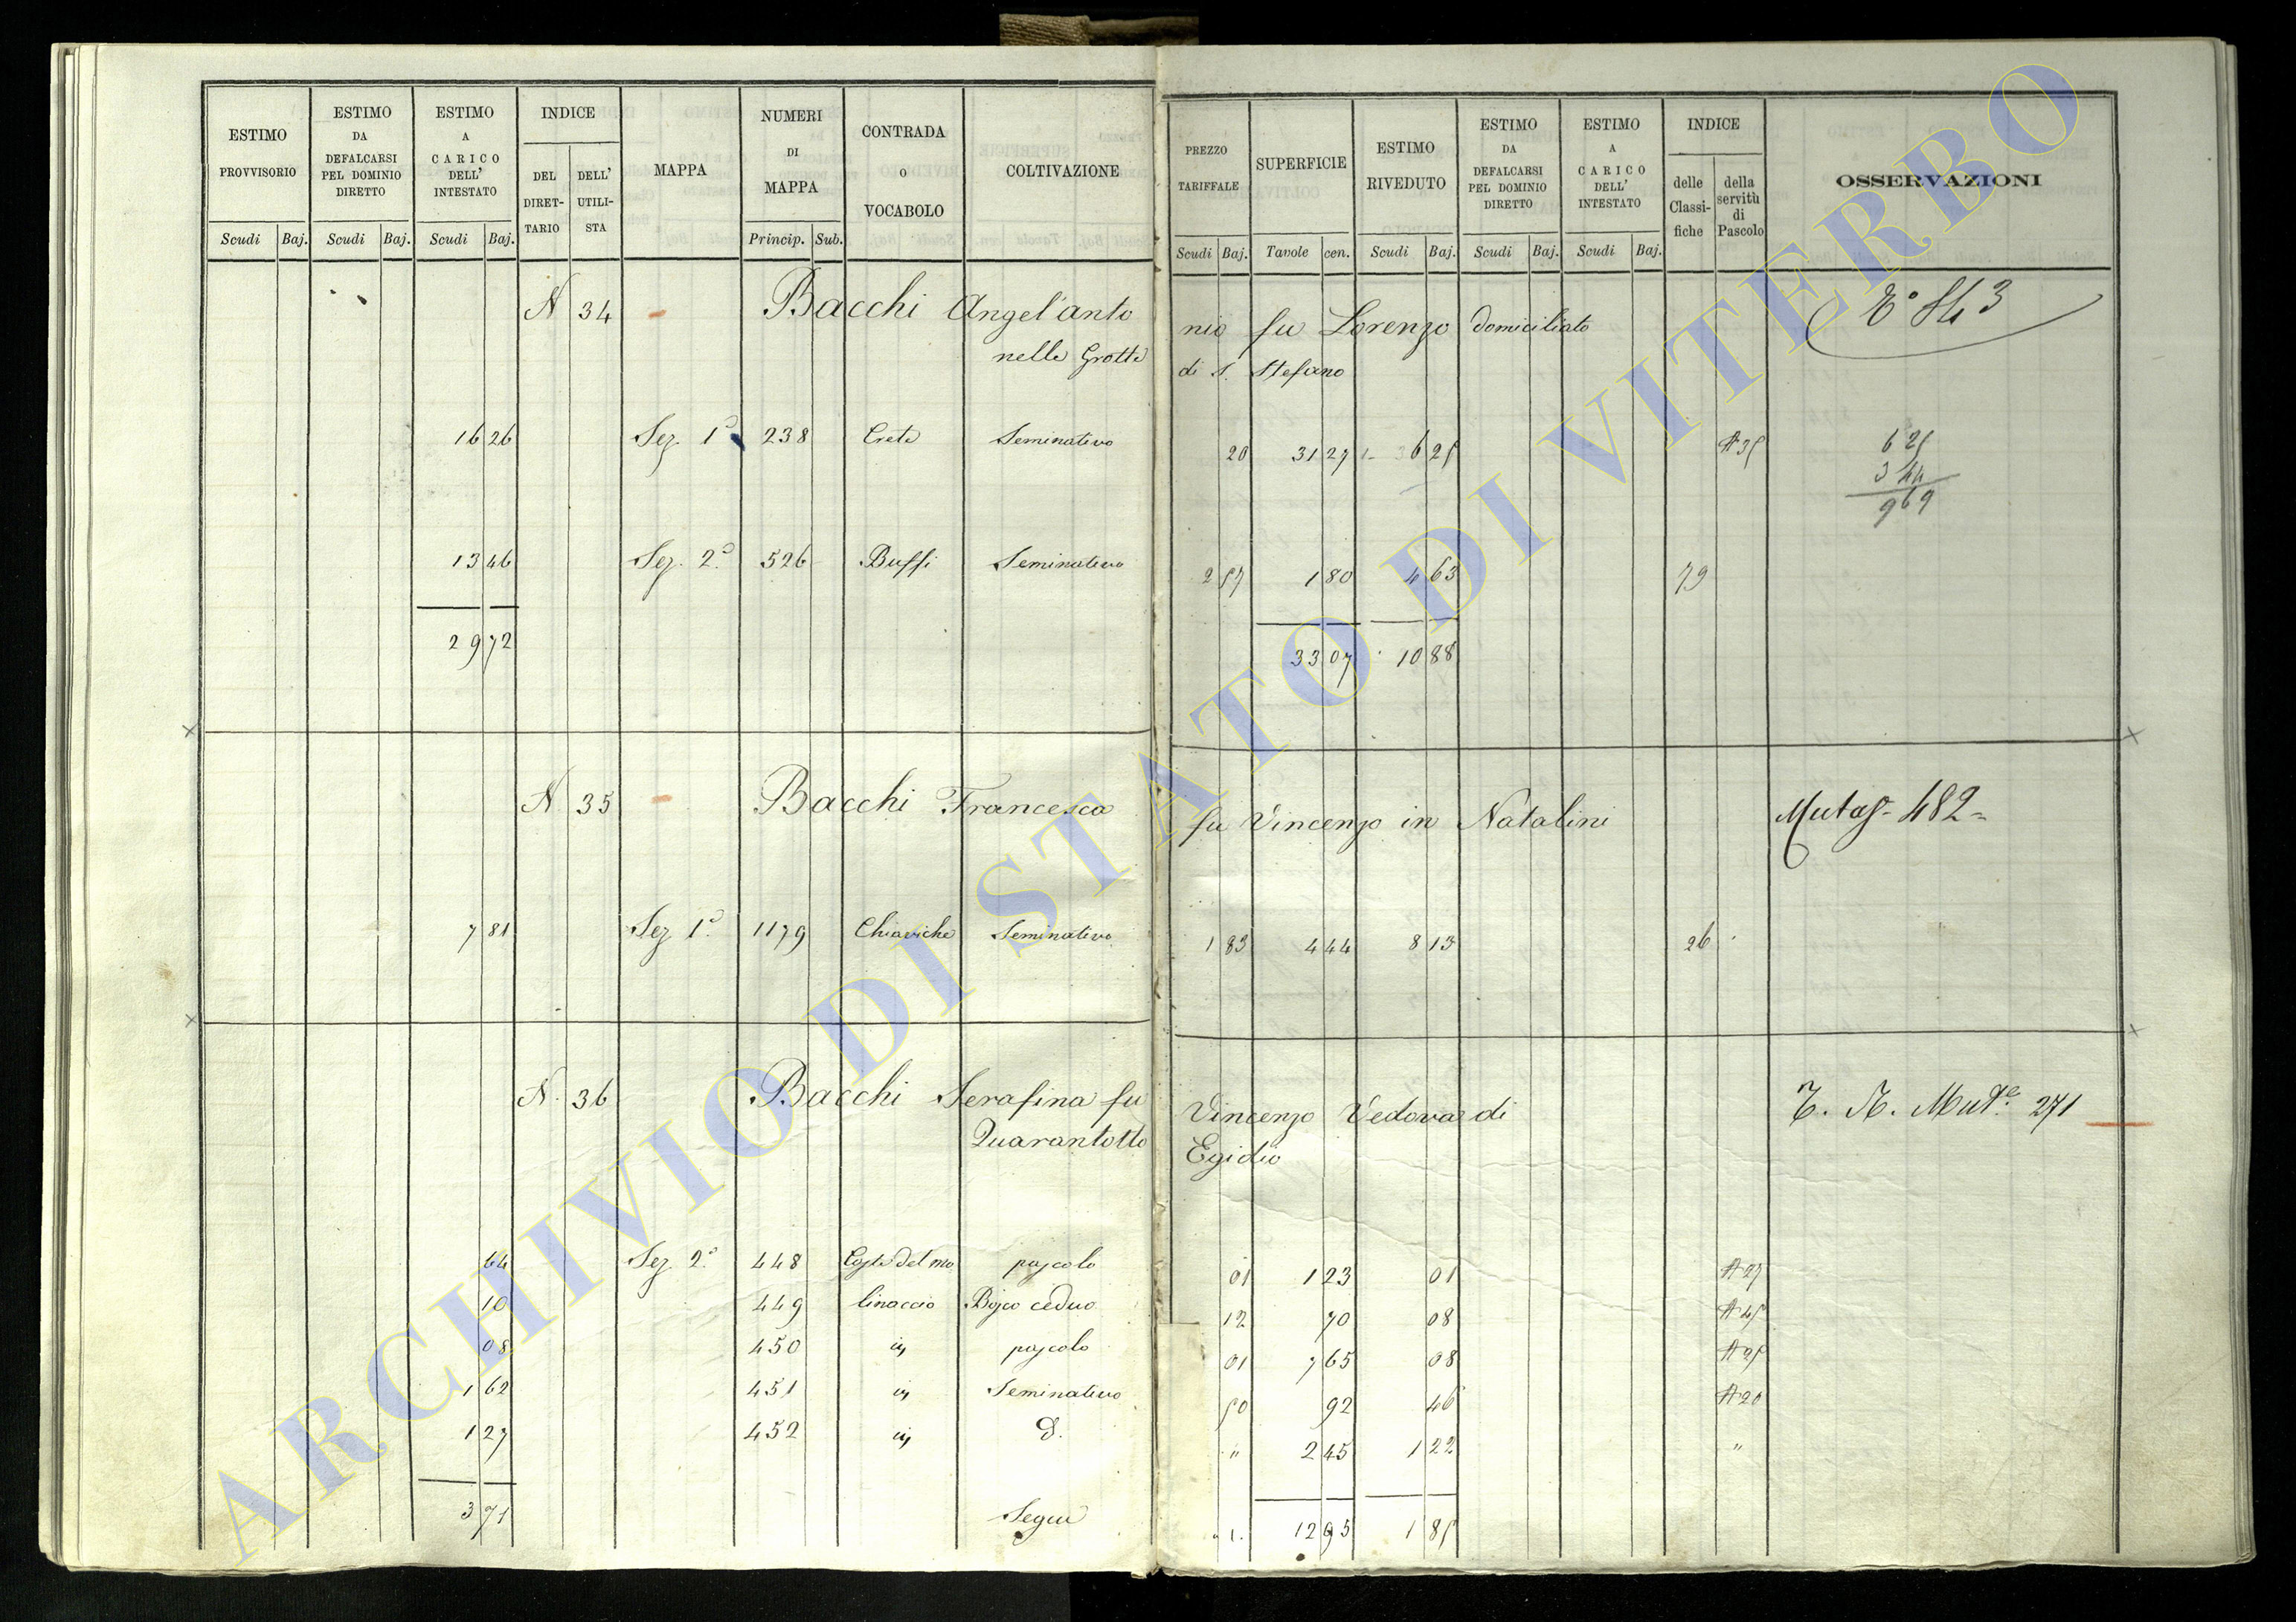 ESTIMO PROVVISORIO | ESTIMO DA DEFALCARSI PEL DOMINIO DIRETTO | ESTIMO A CARICO DELL' INTESTATO | INDICE DEL DIRET-TARIO | DELL' UTILI-STA | MAPPA | NUMERI DI MAPPA | CONTRADA O VOCABOLO | COLTIVAZIONE | PREZZO TARIFFALE | SUPERFICIE | ESTIMO RIVEDUTO | ESTIMO DA DEFALCARSI PEL DOMINIO DIRETTO | ESTIMO A CARICO DELL' INTESTATO | INDICE delle Classi-fiche | della servitù di Pascolo | OSSERVAZIONI
Scudi Baj. | Scudi Baj. | Scudi Baj. | Princip. Sub. | Scudi Baj. | Tavole cen. | Scudi Baj. | Scudi Baj. | Scudi Baj.
N 34 Bacchi Angel'anto nio fu Lorenzo domiciliato
nelle Grotte di S. Stefano
16 26 Sez. 1ª 238 Crete Seminativo 20 31 27 6 25 A 35 6 25
3 44
9 69
13 46 Sez. 2ª 526 Buffi Seminativo 2 57 1 80 4 63 79
29 72 33 07 10 88
N 35 Bacchi Francesca fu Vincenzo in Natalini Mutaz. 482
7 81 Sez 1ª 1179 Chiaviche Seminativo 1 83 4 44 8 13 26
N. 36 Bacchi Serafina fu Vincenzo Vedova di T. N. Mut.e 271
Quarantotto Egidio
64 Sez 2ª 448 Coste del mo pascolo 01 1 23 01 A 27
10 449 linaccio Bosco ceduo 12 70 08 A 45
08 450 pascolo 01 7 65 08 A 25
1 62 451 Seminativo 50 92 46 A 20
1 27 452 d. " 2 45 1 22 "
3 71 Segue 12 95 1 85
ARCHIVIO DI STATO DI VITERBO